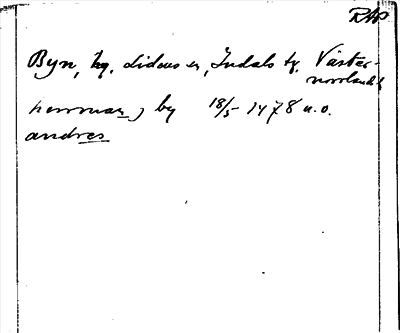 RAP
Byn, hg. Lidens sn, Indals tg. Väster-
norrlands l
herrman, by 18/5 1478 u.o.
andres